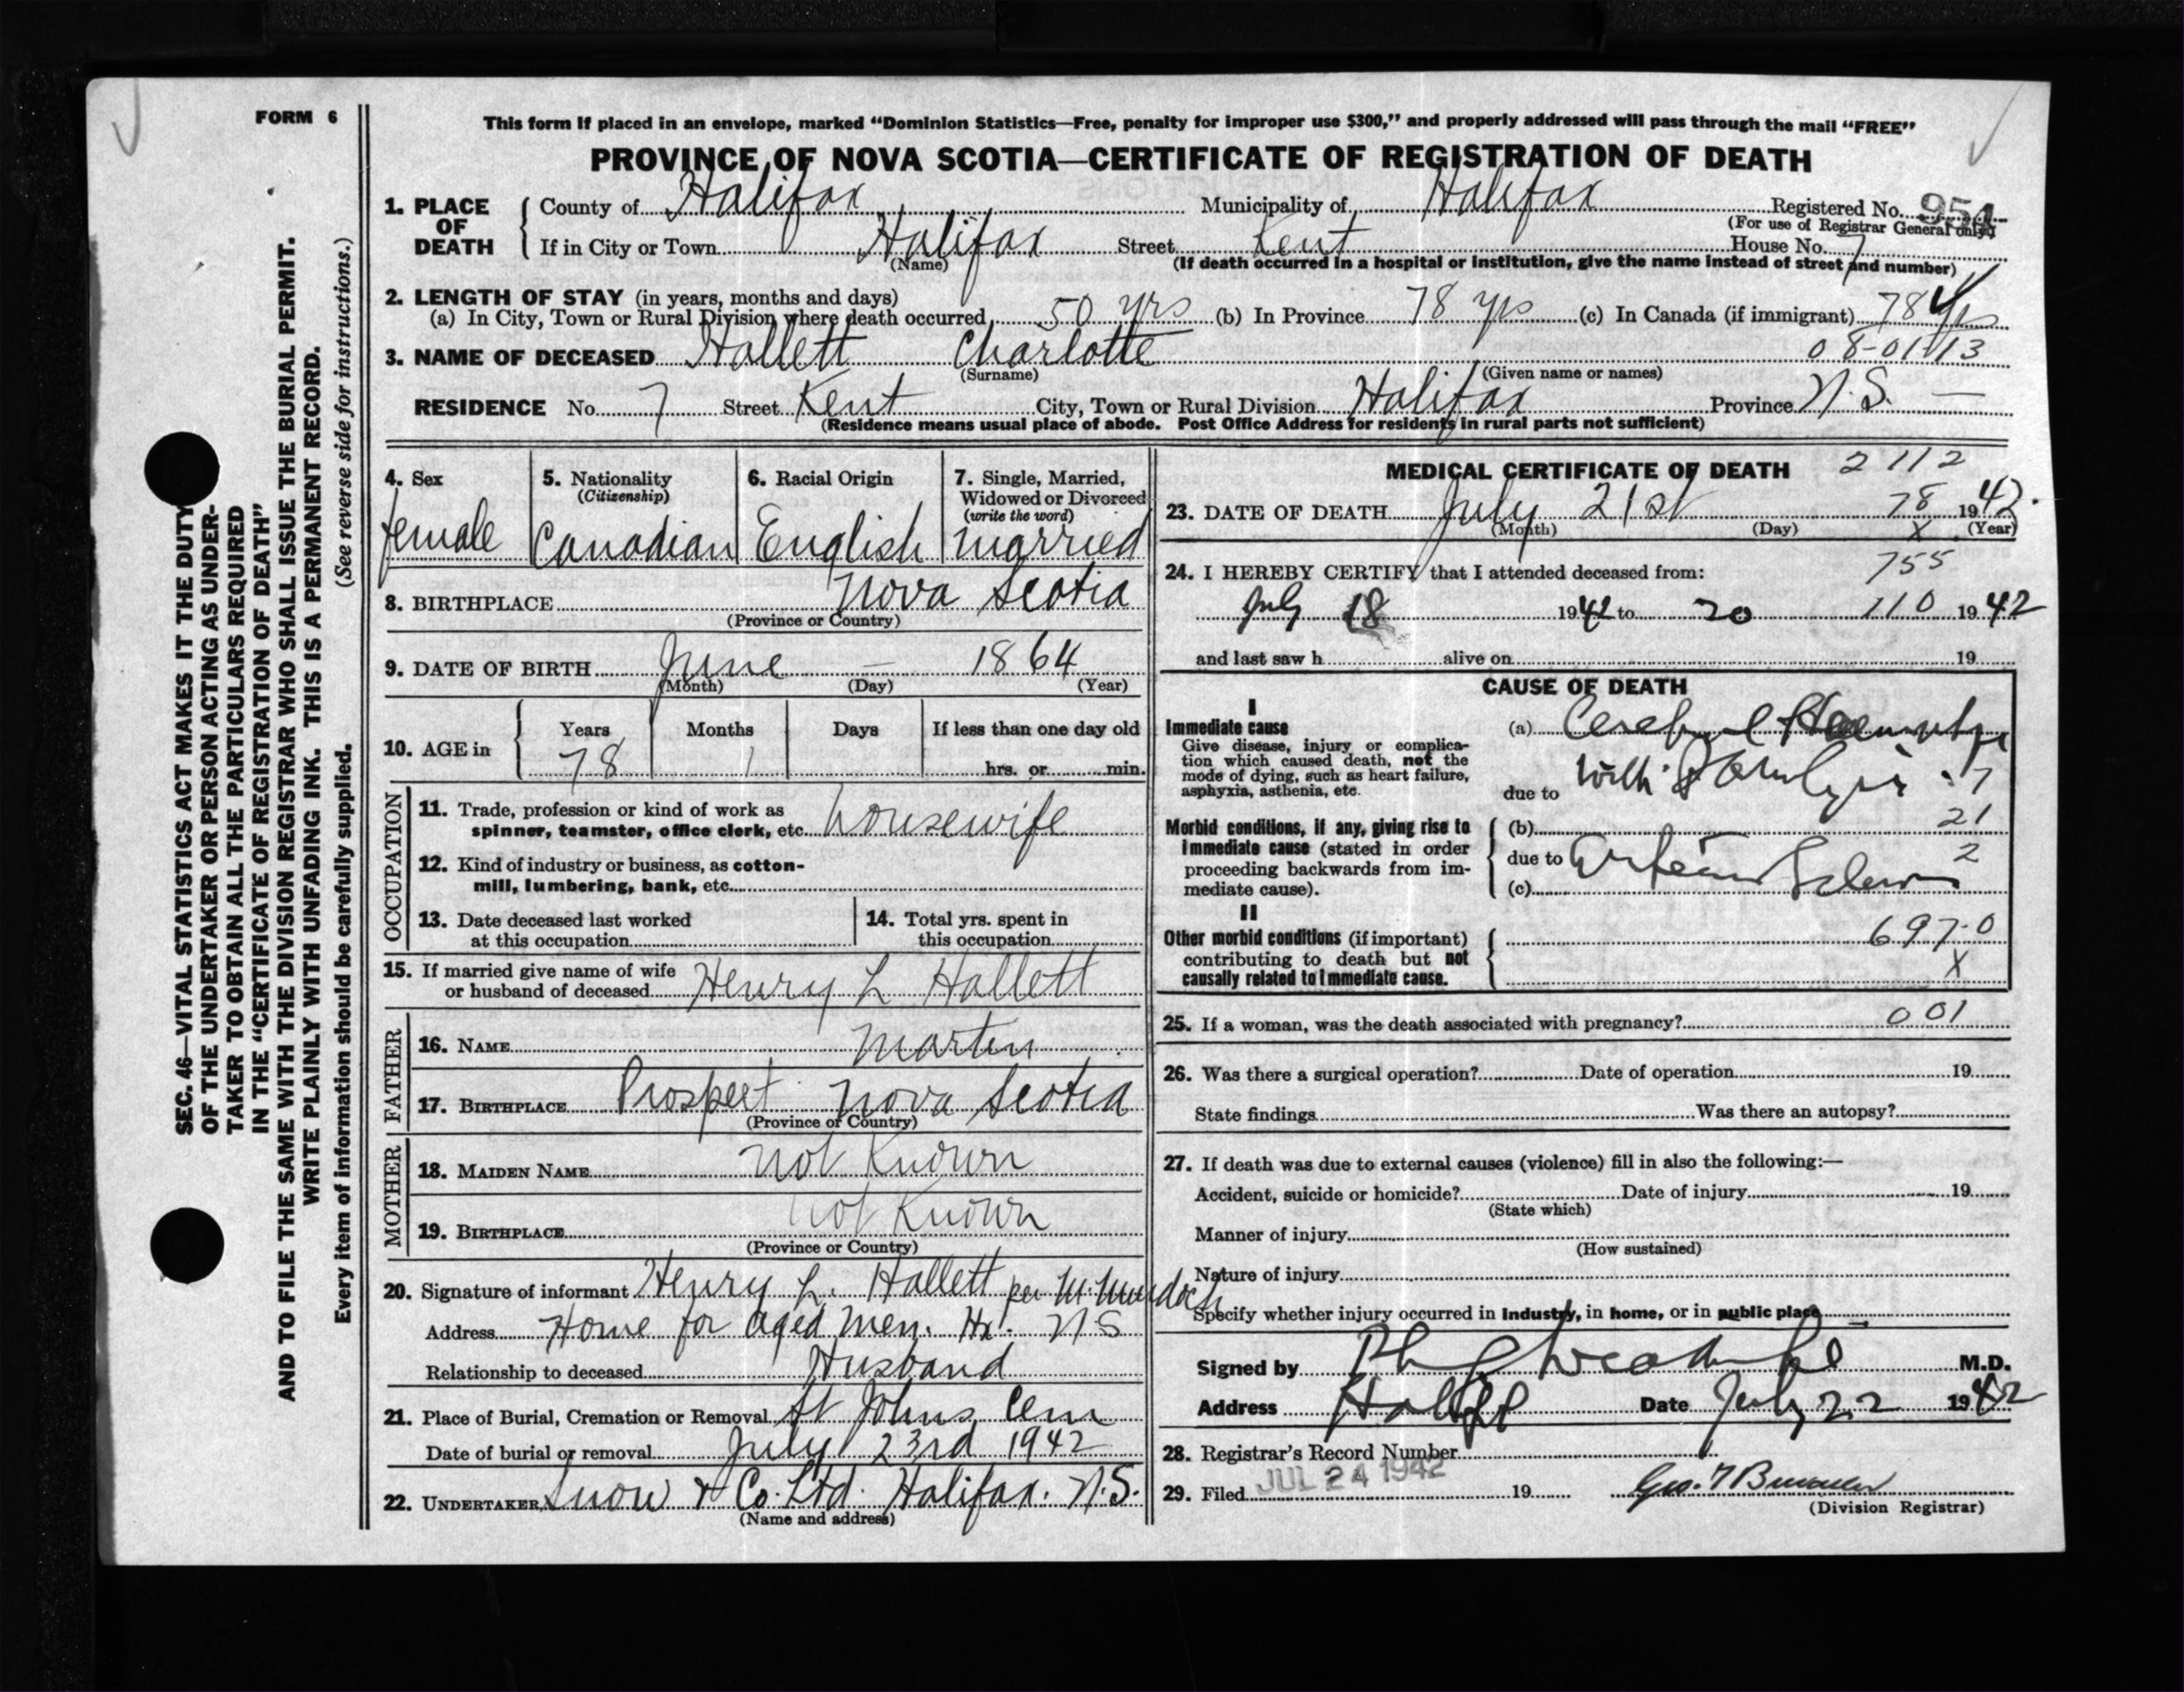 FORM 6
This form if placed in an envelope, marked “Dominion Statistics—Free, penalty for improper use $300,” and properly addressed will pass through the mail “FREE”
PROVINCE OF NOVA SCOTIA—CERTIFICATE OF REGISTRATION OF DEATH
1. PLACE OF DEATH
County of Halifax Municipality of Halifax Registered No. 954
(For use of Registrar General only)
If in City or Town Halifax Street Kent House No. 7
(Name) (If death occurred in a hospital or institution, give the name instead of street and number)
2. LENGTH OF STAY (in years, months and days)
(a) In City, Town or Rural Division where death occurred 50 yrs (b) In Province 78 yrs (c) In Canada (if immigrant) 78 yrs
3. NAME OF DECEASED Hallett Charlotte 08-01-13
(Surname) (Given name or names)
RESIDENCE No. 7 Street Kent City, Town or Rural Division Halifax Province N.S. —
(Residence means usual place of abode. Post Office Address for residents in rural parts not sufficient)
4. Sex female
5. Nationality (Citizenship) Canadian
6. Racial Origin English
7. Single, Married, Widowed or Divorced (write the word) married
8. BIRTHPLACE Nova Scotia
(Province or Country)
9. DATE OF BIRTH June — 1864
(Month) (Day) (Year)
10. AGE in Years 78 Months 1 Days If less than one day old hrs. or min.
OCCUPATION
11. Trade, profession or kind of work as
spinner, teamster, office clerk, etc. housewife
12. Kind of industry or business, as cotton-
mill, lumbering, bank, etc.
13. Date deceased last worked
at this occupation
14. Total yrs. spent in
this occupation
15. If married give name of wife
or husband of deceased Henry L Hallett
FATHER
16. NAME Martin
17. BIRTHPLACE Prospect Nova Scotia
(Province or Country)
MOTHER
18. MAIDEN NAME not Known
19. BIRTHPLACE not Known
(Province or Country)
20. Signature of informant Henry L. Hallett per M. Murdoch
Address Home for aged Men. Hx. N S
Relationship to deceased Husband
21. Place of Burial, Cremation or Removal St Johns Cem
Date of burial or removal July 23rd 1942
22. UNDERTAKER Snow & Co. Ltd. Halifax. N.S.
(Name and address)
MEDICAL CERTIFICATE OF DEATH 2112
23. DATE OF DEATH July 21st 78 1942.
(Month) (Day) X (Year)
24. I HEREBY CERTIFY that I attended deceased from: 755
July 18 1942 to 20 110 1942
and last saw h alive on 19
CAUSE OF DEATH
I
Immediate cause
Give disease, injury or complica-
tion which caused death, not the
mode of dying, such as heart failure,
asphyxia, asthenia, etc.
(a) Cerebral
due to with Paralysis 7
Morbid conditions, if any, giving rise to
immediate cause (stated in order
proceeding backwards from im-
mediate cause).
(b) 21
due to 2
(c)
II
Other morbid conditions (if important)
contributing to death but not
causally related to immediate cause.
697-0
X
25. If a woman, was the death associated with pregnancy? 001
26. Was there a surgical operation? Date of operation 19
State findings Was there an autopsy?
27. If death was due to external causes (violence) fill in also the following:—
Accident, suicide or homicide? Date of injury 19
(State which)
Manner of injury
(How sustained)
Nature of injury
Specify whether injury occurred in industry, in home, or in public place
Signed by M.D.
Address Date July 22 1942
28. Registrar's Record Number
29. Filed JUL 24 1942 19
(Division Registrar)
SEC. 46—VITAL STATISTICS ACT MAKES IT THE DUTY
OF THE UNDERTAKER OR PERSON ACTING AS UNDER-
TAKER TO OBTAIN ALL THE PARTICULARS REQUIRED
IN THE “CERTIFICATE OF REGISTRATION OF DEATH”
AND TO FILE THE SAME WITH THE DIVISION REGISTRAR WHO SHALL ISSUE THE BURIAL PERMIT.
WRITE PLAINLY WITH UNFADING INK. THIS IS A PERMANENT RECORD.
Every item of information should be carefully supplied. (See reverse side for instructions.)